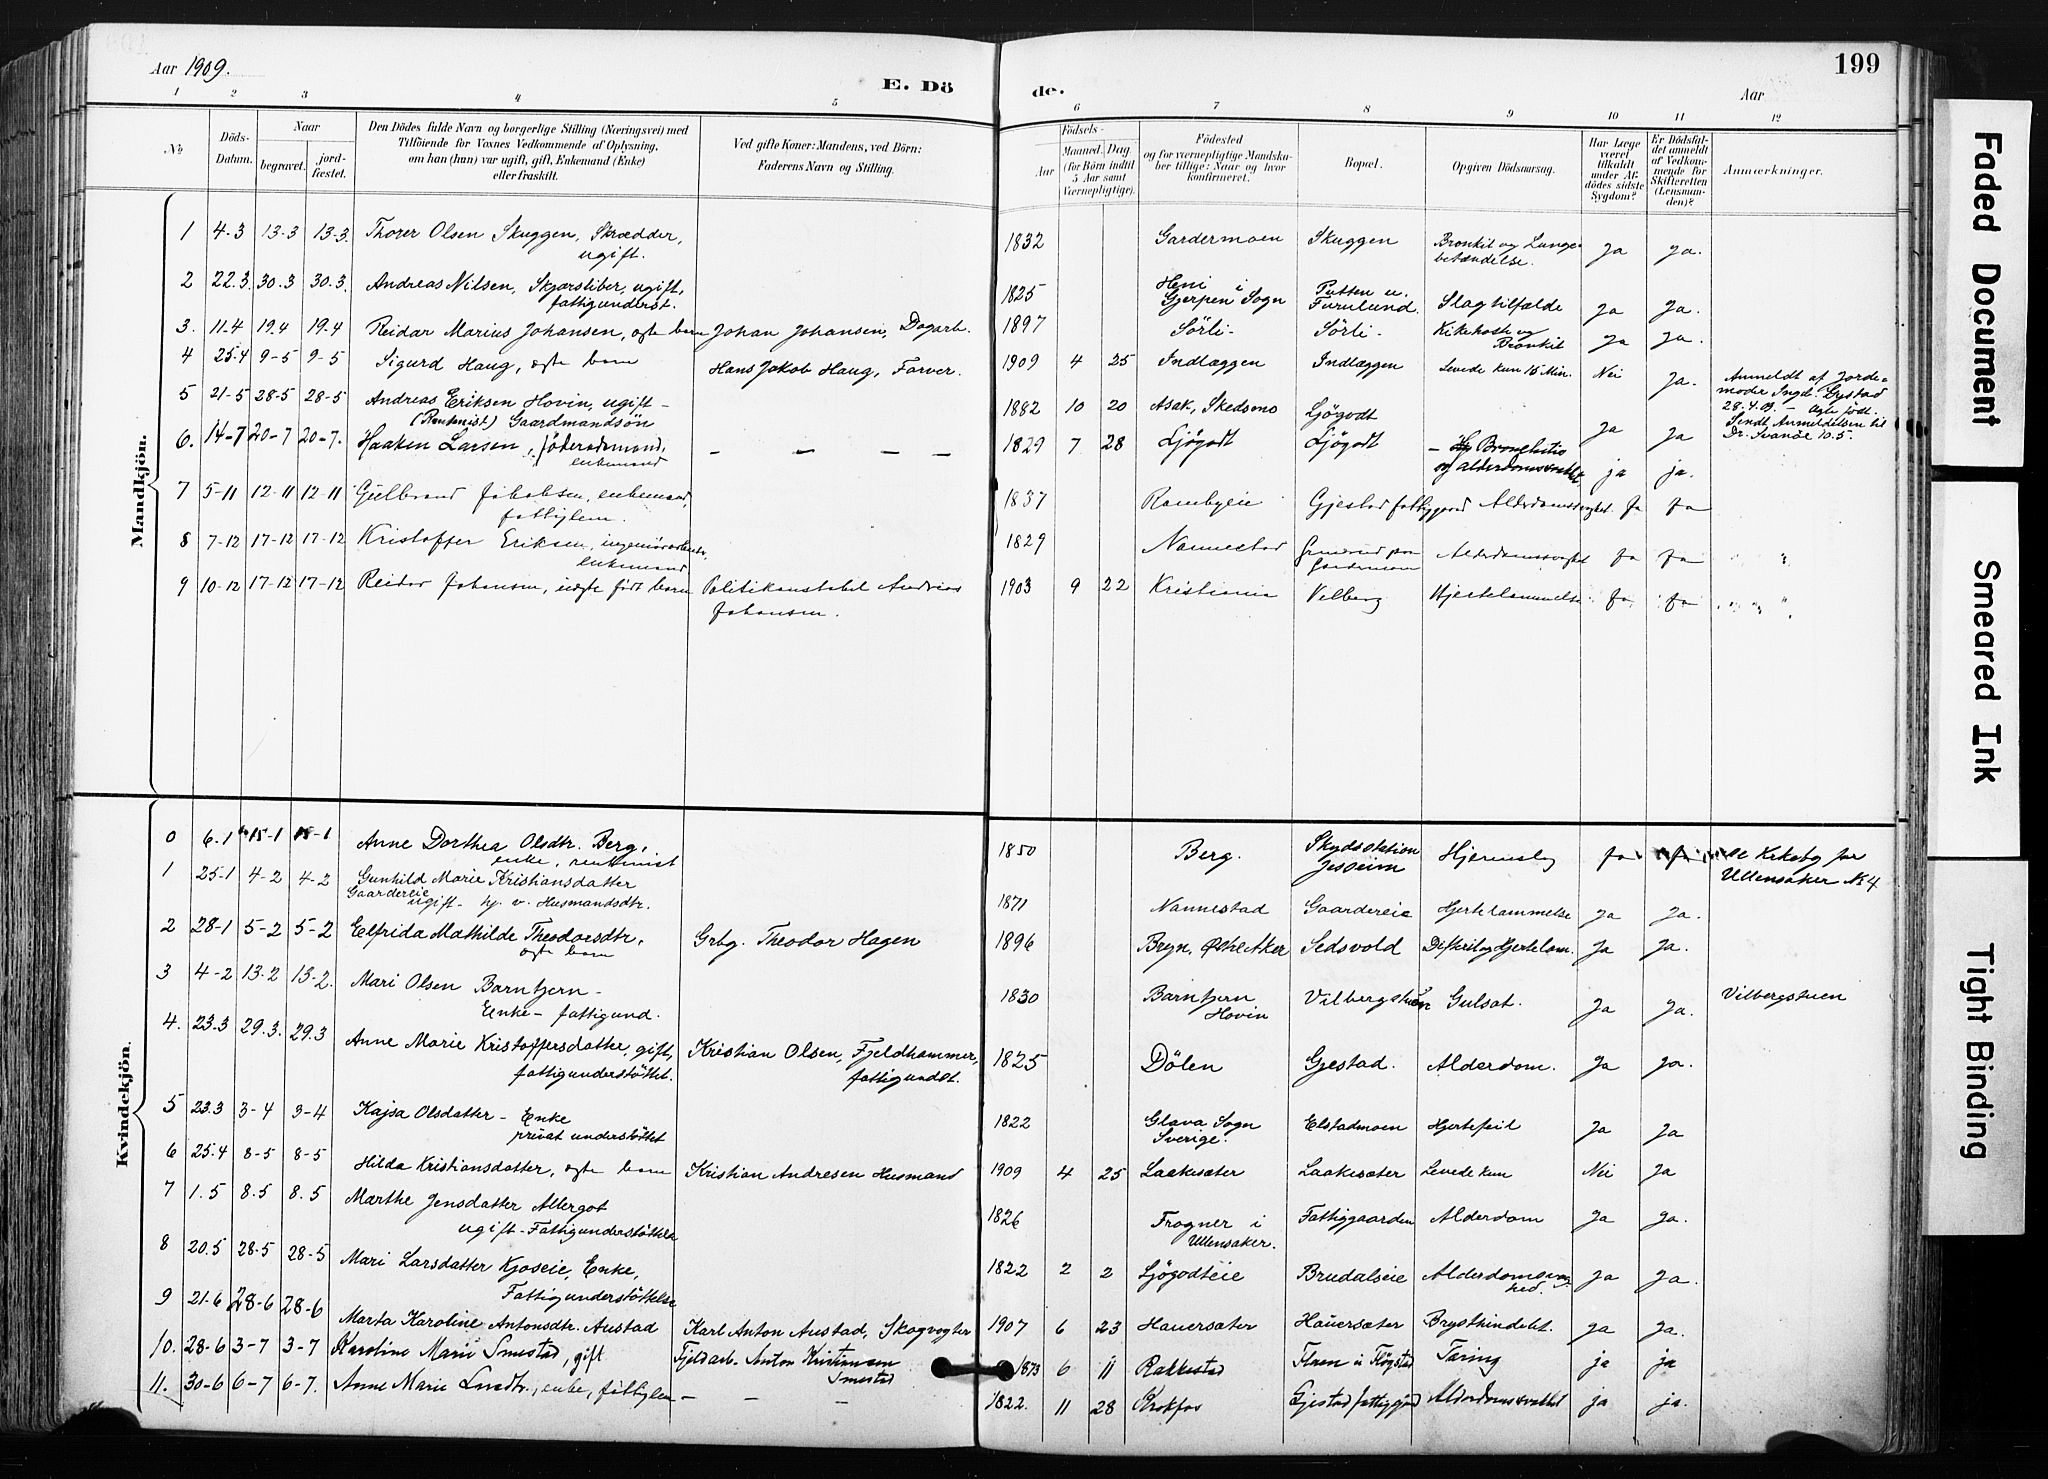 Aar 1909.
E. Dö
de.
Aar
199
1 2 3 4 5 6 7 8 9 10 11 12
No
Döds-Datum.
Naar
begravet.
jord-fæstet.
Den Dödes fulde Navn og borgerlige Stilling (Næringsvei) med
Tilföiende for Voxnes Vedkommende af Oplysning,
om han (hun) var ugift, gift, Enkemand (Enke)
eller fraskilt.
Ved gifte Koner: Mandens, ved Börn:
Faderens Navn og Stilling.
Födsels-
Aar
Maaned. Dag
(for Börn indtil
5 Aar samt
Værnepligtige).
Födested
og for værnepligtige Mandska-
ber tillige: Naar og hvor
konfirmeret.
Bopæl.
Opgiven Dödsaarsag.
Har Læge
været
tilkaldt
under Af-
dödes sidste
Sygdom?
Er Dödsfal-
det anmeldt
af Vedkom-
mende for
Skifteretten
(Lensman-
den)?
Anmærkninger.
Mandkjön.
1 4.3 13-3 13-3. Thorer Olsen Skuggen, Skrædder, 1832 Gardermoen Skuggen Bronkit og Lunge-
ugift. betændelse. Ja Ja.
2 22.3 30.3 30.3. Andreas Nilsen, ugift, 1825 Heni i
fattigunderst. Gjerpen Sogn Furulund. Slagtilfælde Ja Ja.
3. 11.4 19.4 19.4 Reidar Marius Johansen, ægte barn Johan Johansen, Dagarb. 1897 Sörli- Sörli- Kikhoste og
Bronkit Ja Ja.
4 25.4 9-5 9-5 Sigurd Haug, ægte barn Hans Jakob Haug, Farver. 1909 4 25 Indlæggen Indlæggen Levede kun 15 Min. Nei Ja. Anmeldt af Jorde-
moder Ingb. Gystad
28.4.09. - Ægte född.
Sendt Anmeldelsen til
Dr. Svanöe 10.5.
5 21-5 28-5 28-5 Andreas Eriksen Hovin, ugift - 1882 10 20 Asak, Skedsmo Ljögodt Ja Ja
(Rentenist) Gaardmandsön
6. 14-7 20-7 20-7. Haaken Larsen, föderaadsmand, - - - - 1829 7 28 Ljögodt Ljögodt - Bronchitis
enkemand og alderdomssvakhet ja ja.
7 5-11 12-11 12-11 Gulbrand Jakobsen, enkemand, 1837 Rambyeie Gjestad fattiggaard Alderdomssvaghet. Ja Ja
fattiglem.
8 7-12 17-12 17-12 Kristoffer Eriksen, 1829 Nannestad Alderdomssvaghet Ja Ja " "
enkemand Gardermoen
9 10-12 17-12 17-12 Reidar Johansen, uægte född barn Politikonstabel Andreas 1903 9 22 Kristiania Vilberg Hjertelammelse Ja. Ja
Johansen.
Kvindekjön.
0 6.1 15-1 15-1 Anne Dorthea Olsdtr. Berg, 1850 Berg. Skydsstation
enke, rentenist Jessheim Hjerneslag Ja Kirkebog for
Ullensaker No 4
1 25-1 4-2 4-2 Gunhild Marie Kristiansdatter 1871 Nannestad Gaardereie Hjertelammelse Ja Ja.
Gaardereie
ugift - hj. v. Husmandsdtr.
2 28-1 5-2 5-2 Elfrida Mathilde Theodorsdtr, Grbg. Theodor Hagen 1896 Bryn, Østre Aker Sedsvold Difterit og Hjertelam. Ja Ja.
ægte barn
3 4-2 13-2 13-2. Mari Olsen Barntjern - 1830 Barntjern Vilbergstuen Gulsot. Ja Ja. Vilbergstuen
Enke - fattigund. Hovin
4. 23.3 29.3. 29.3 Anne Marie Kristoffersdatter, gift, Kristian Olsen, Fjeldhammer, 1825 Dölen Gjestad. Alderdom. Ja Ja.
fattigunderstöttet. fattigundst.
5 23.3 3-4 3-4 Kajsa Olsdatter - Enke 1822 Glava Sogn Elstadmoen Hjertefeil Ja Ja
privat understöttet Sverige.
6 25.4 8-5 8-5 Hilda Kristiansdatter, ægte barn Kristian Andresen Husmand 1909 4 25 Laakesæter Laakesæter Levede kun Nei Ja
7 1.5 8.5 8.5 Marthe Jensdatter Allergot 1826 Frogner i Fattiggaarden Alderdom Ja Ja.
ugift - Fattigunderstöttelse Ullensaker.
8 20.5 28.5 28-5 Mari Larsdatter Kjoseie, Enke, 1822 2 2 Ljögodteie Brudalseie Alderdomssvag-
Fattigunderstöttelse hed. Ja Ja.
9 21-6 28-6 28-6 Marta Karoline Antonsdtr. Austad Karl Anton Austad, Skogvogter 1907 6 23 Hauersæter Hauersæter Brysthindebet. Ja Ja.
10. 28-6 3-7 3-7 Karoline Marie Smestad, gift Fjeldarb. Anton Kristiansen 1873 6 11 Rakkestad Tæring ja ja
Smestad
11. 30-6 6-7 6-7. Anne Marie enke, fattiglem - - - 1822. 11 28 Krokfos Gjestad fattiggård Alderdomssvakhet ja ja.
Faded Document
Smeared Ink
Tight Binding